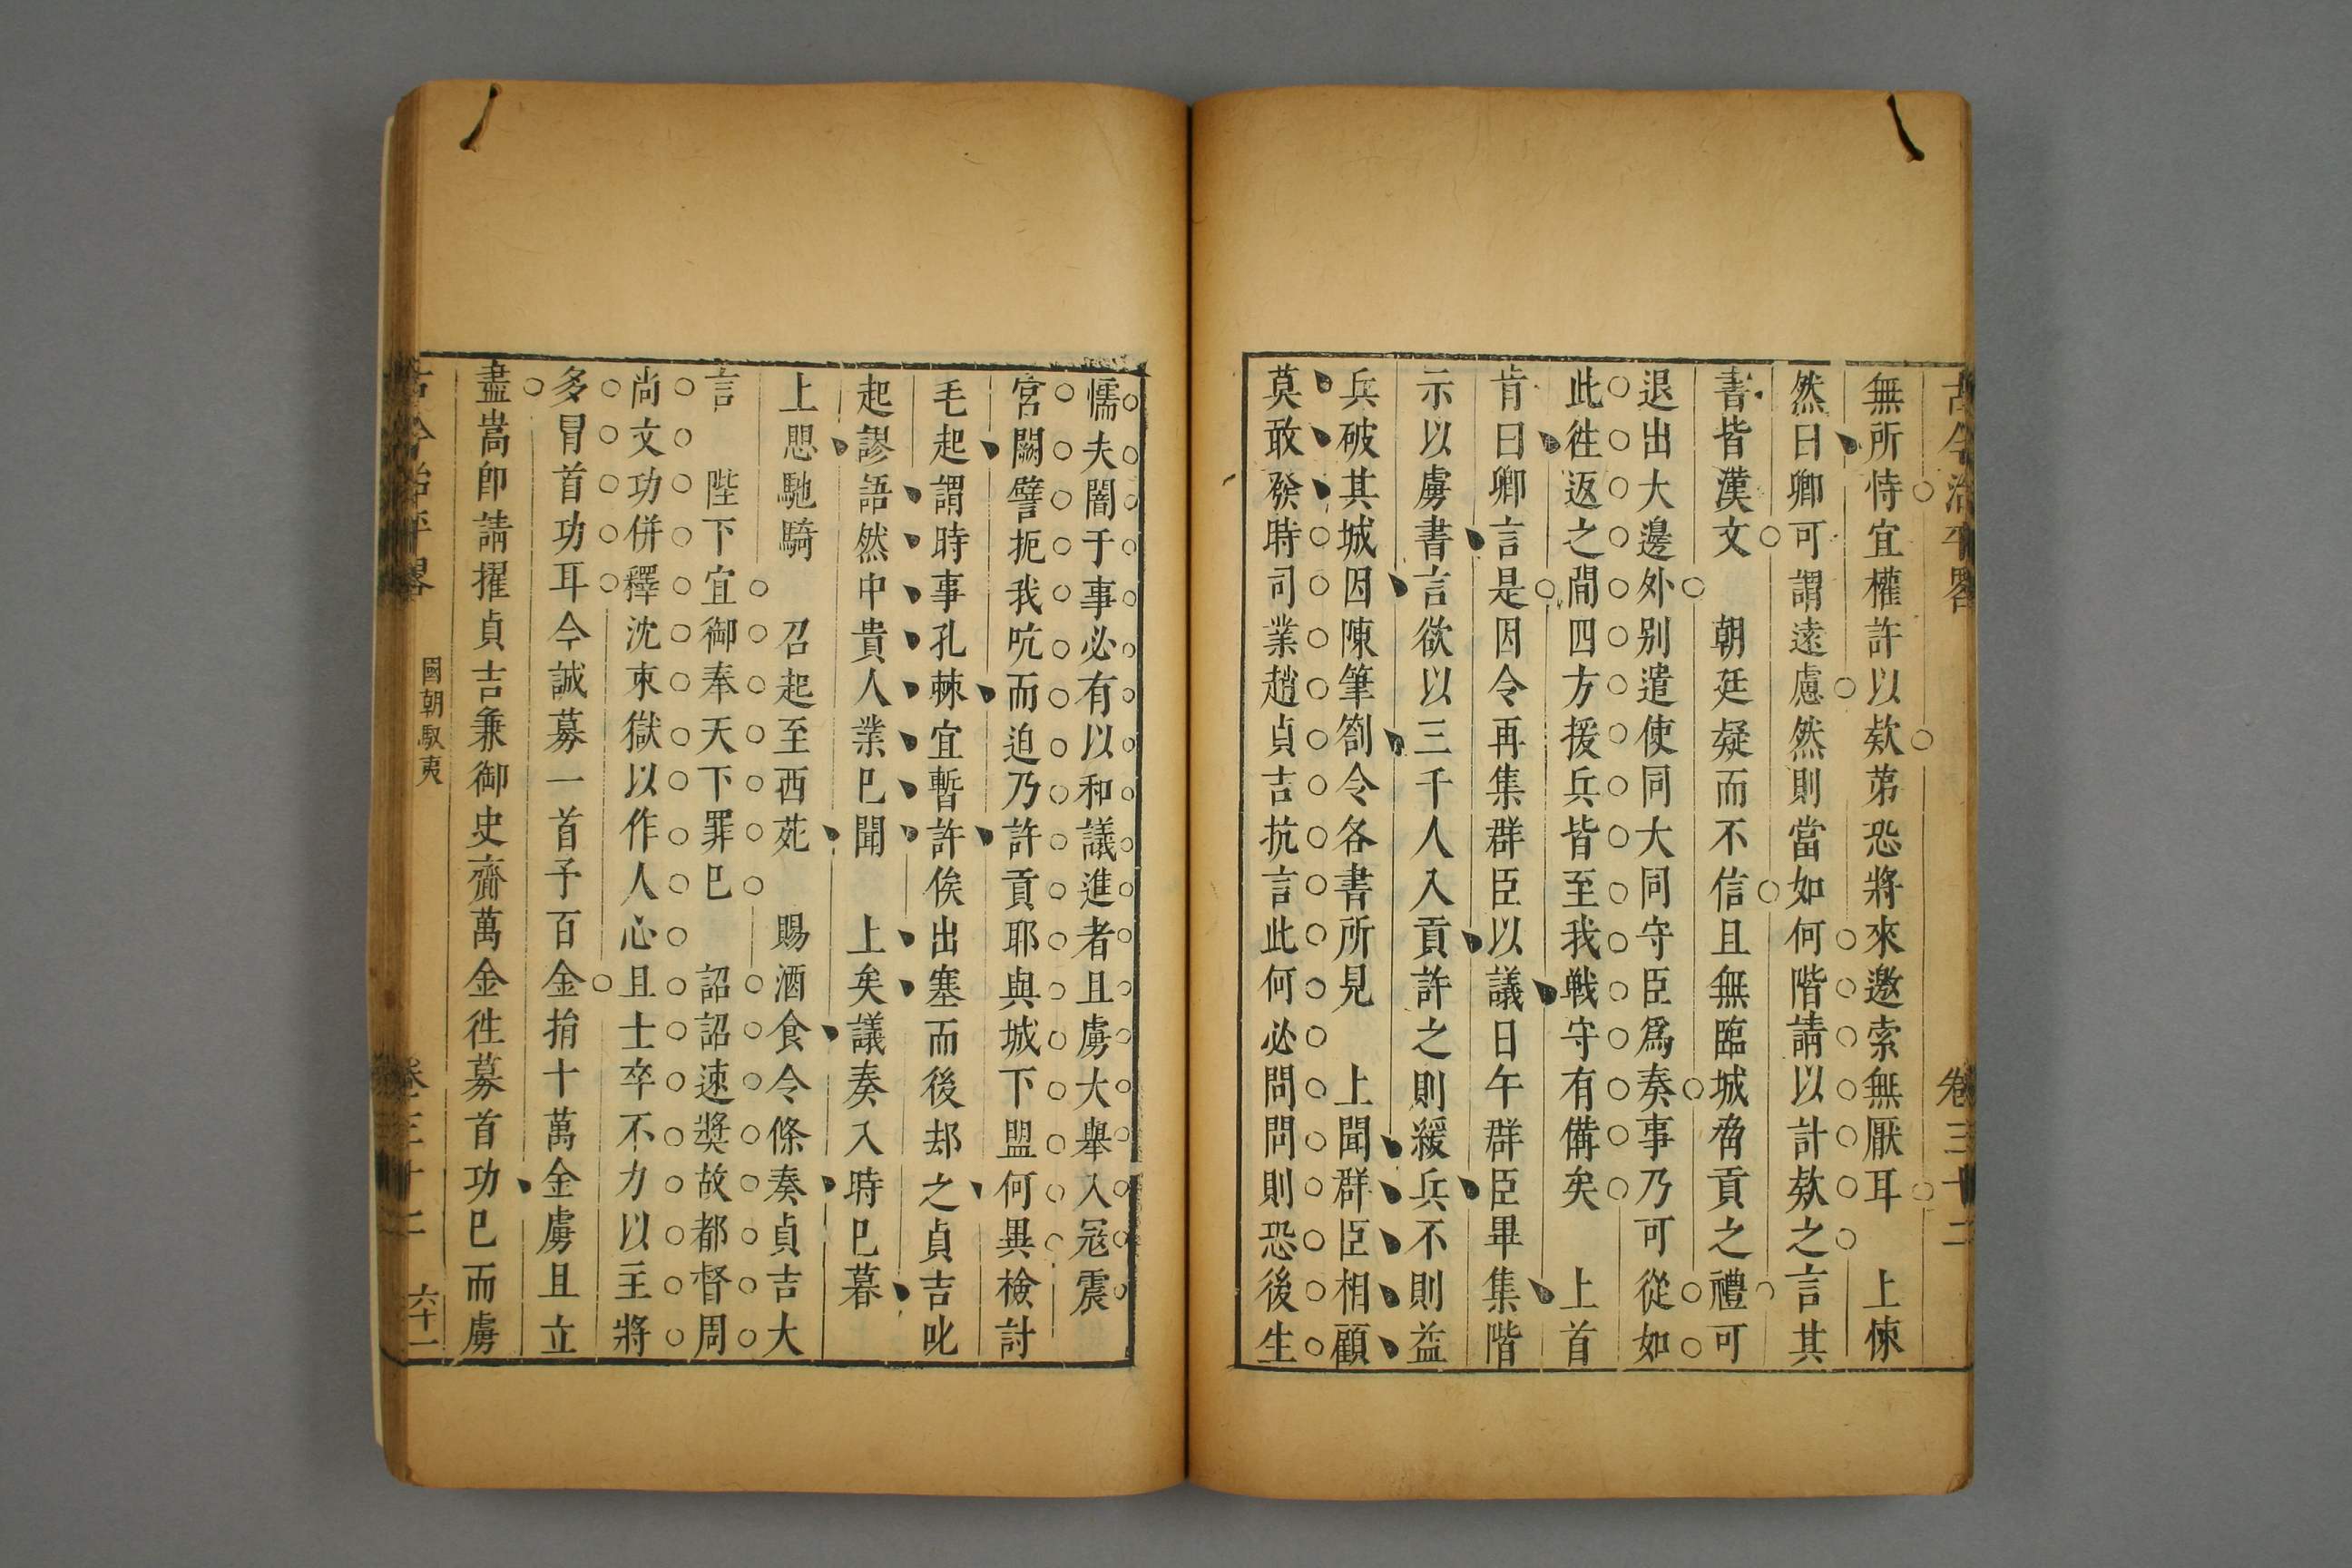 古今治平畧　卷三十二
無所恃宜權許以欵苐恐將來邀索無厭耳　上悚
然曰卿可謂遠慮然則當如何階請以計欵之言其
書皆漢文　朝廷疑而不信且無臨城脅貢之禮可
退出大邊外別遣使同大同守臣爲奏事乃可從如
此徃返之間四方援兵皆至我戦守有備矣　上首
肯曰卿言是因令再集群臣以議日午群臣畢集階
示以虜書言欲以三千人入貢許之則緩兵不則益
兵破其城因陳筆劄令各書所見　上聞群臣相顧
莫敢發時司業趙貞吉抗言此何必問問則恐後生
懦夫闇于事必有以和議進者且虜大舉入寇震
宮闕譬扼我吭而迫乃許貢耶與城下盟何異檢討
毛起謂時事孔棘宜暫許俟出塞而後却之貞吉叱
起謬語然中貴人業巳聞　上矣議奏入時巳暮
上愳馳騎　召起至西苑　賜酒食令條奏貞吉大
言　陛下宜御奉天下罪巳　詔詔速奬故都督周
尚文功併釋沈束獄以作人心且士卒不力以主將
多冒首功耳今誠募一首予百金捐十萬金虜且立
盡嵩卽請擢貞吉兼御史齎萬金徃募首功巳而虜
古今治平畧　國朝馭夷　卷三十二　六十一